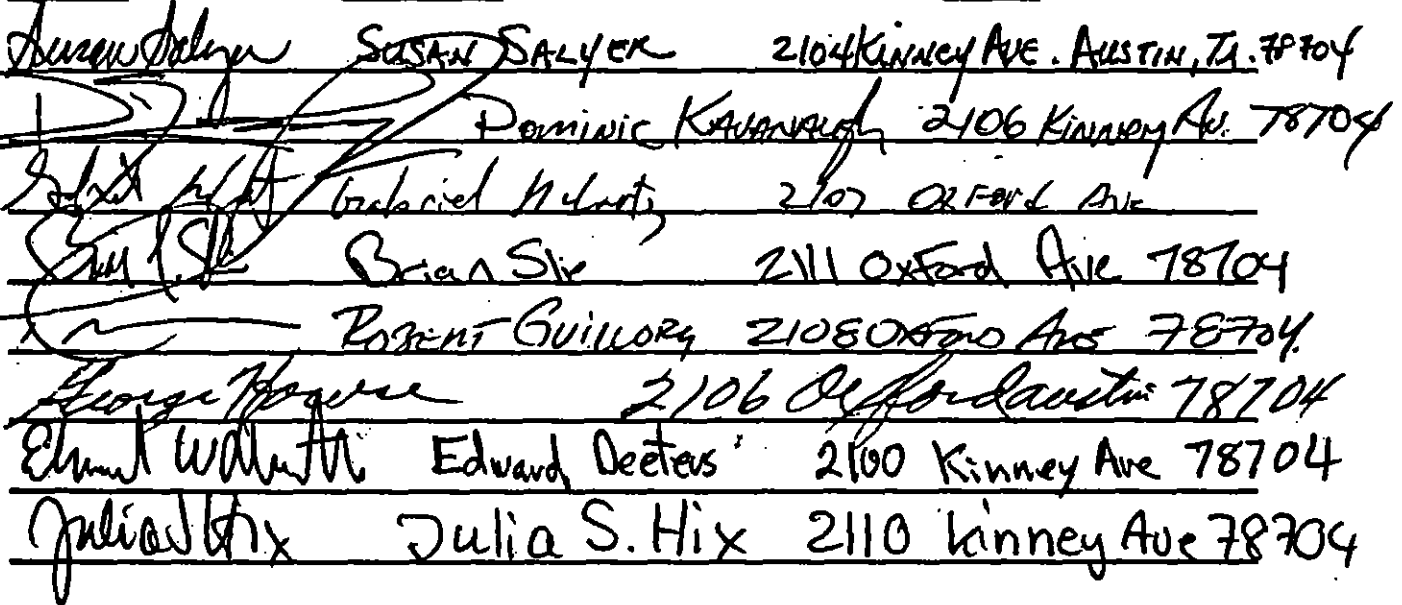 Susan Salyer SUSAN SALYER 2104 KINNEY AVE. AUSTIN, TX. 78704
DOMINIC KAVANAUGH 2106 KINNEY AV. 78704
Gabriel 2107 Oxford Ave
Brian 2111 Oxford Ave 78704
ROBERT GUILLORY 2108 OXFORD AVE 78704.
George 2106 Oxford austin 78704
Edward Deeters 2100 Kinney Ave 78704
Julia S Hix Julia S. Hix 2110 Kinney Ave 78704